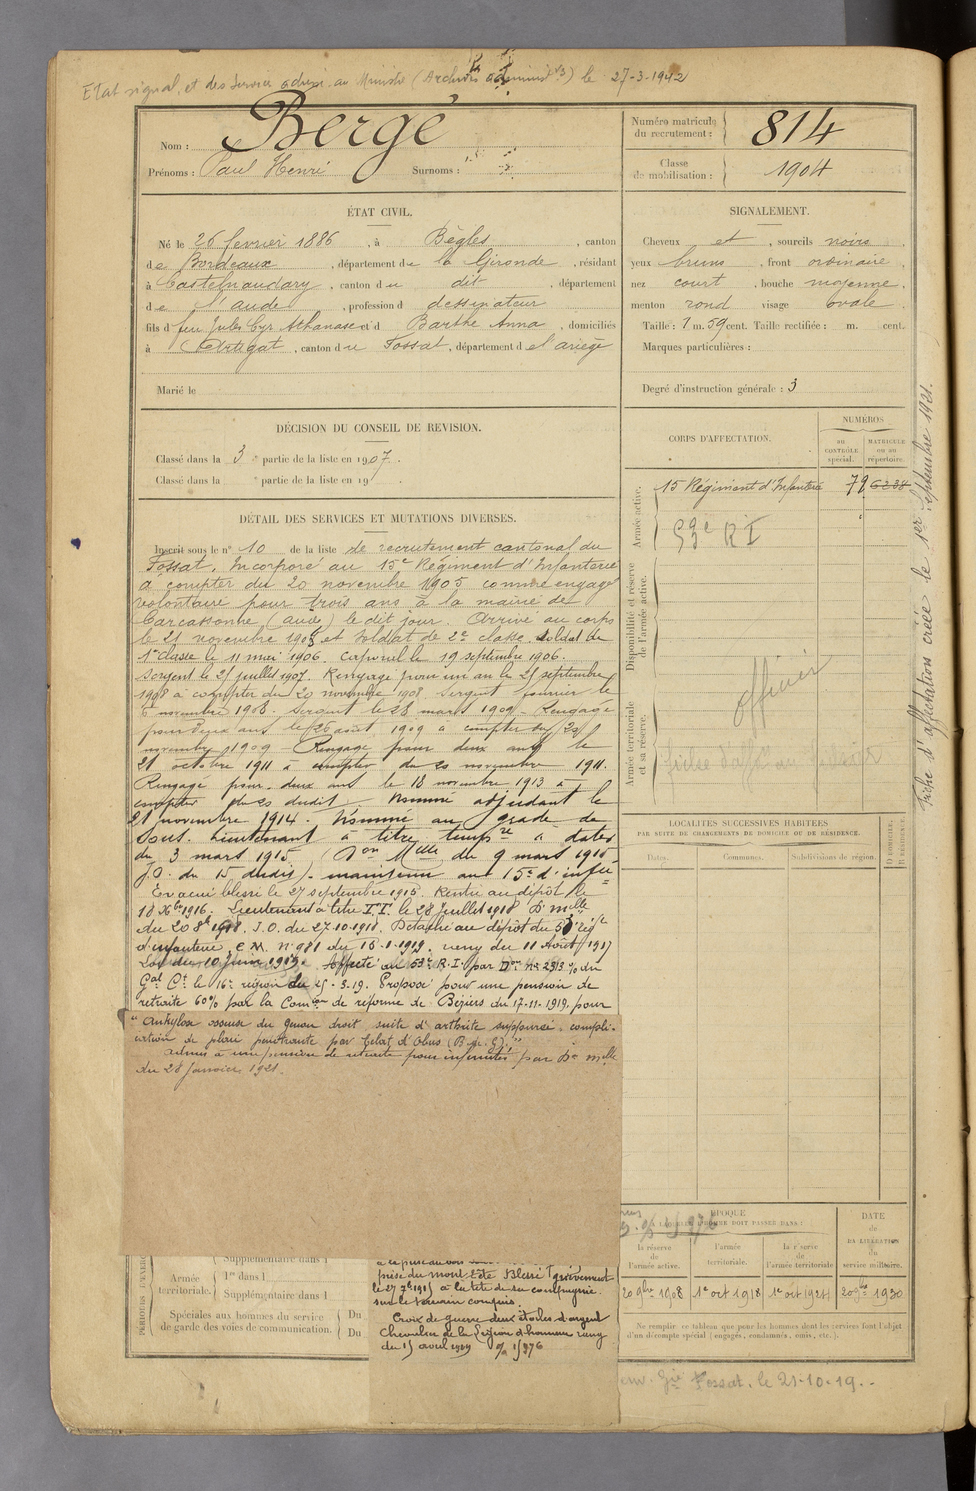 Etat signal. et des Services adress. au Ministre (Archives administ.ves) le 27-3-1942
Nom : Bergé
Prénoms : Paul Henri Surnoms :
Numéro matricule du recrutement : 814
Classe de mobilisation : 1904
ÉTAT CIVIL.
Né le 26 février 1886, à Bègles, canton
de Bordeaux, département de la Gironde, résidant
à Castelnaudary, canton du dit, département
de l'aude, profession de dessinateur
fils de feu Jules Cyr Athanase et d Barthe Anna, domiciliés
à Artigat, canton du Fossat, département de l'ariège
Marié le
SIGNALEMENT.
Cheveux et, sourcils noirs,
yeux bruns, front ordinaire,
nez court, bouche moyenne,
menton rond visage ovale
Taille : 1 m. 59 cent. Taille rectifiée : m. cent.
Marques particulières :
Degré d'instruction générale : 3
DÉCISION DU CONSEIL DE REVISION.
Classé dans la 3e partie de la liste en 1907.
Classé dans la e partie de la liste en 19
DÉTAIL DES SERVICES ET MUTATIONS DIVERSES.
Inscrit sous le n° 10 de la liste de recrutement cantonal du
Fossat. Incorporé au 15e Régiment d'Infanterie
à compter du 20 novembre 1905 comme engagé
volontaire pour trois ans à la mairie de
Carcassonne (aude) le dit jour. Arrivé au corps
le 21 novembre 1905 et Soldat de 2e classe. Soldat de
1e classe le 11 mai 1906. Caporal le 19 septembre 1906.
Sergent le 25 juillet 1907. Rengagé pour un an le 25 septembre
1908 à compter du 20 novembre 1908. Sergent fourrier le
6 novembre 1908. Sergent le 28 mars 1909. Rengagé
pour deux ans le 26 août 1909 à compter du 20
novembre 1909 - Rengagé pour deux ans le
21 octobre 1911 à compter du 20 novembre 1911.
Rengagé pour deux ans le 18 novembre 1913 à
compter du 20 dudit. Nommé adjudant le
21 novembre 1914. Nommé au grade de
Sous-Lieutenant à titre temp.re à dater
du 3 mars 1915 (Don Mlle du 9 mars 1915
J.O. du 15 dudit). maintenu au 15e d'infie
Evacué blessé le 27 septembre 1915. Rentré au dépôt le
18 Xbre 1916. Lieutenant à titre T.T. le 28 Juillet 1918 D. mlle
du 20 8b 1918. J.O. du 27.10.1918. Détaché au dépôt du 53 Régt
d'infanterie, C.M. N° 981 du 16.1.1919. rang du 11 Août 1917
Loi du 10 Juin 1919. Affecté au 53e R.I. par Don N° 2913 % du
Gal Ct le 16e région du 25-3-19. Proposé pour une pension de
retraite 60% par la Comon de réforme de Béziers du 17-11-1919, pour
"ankylose osseuse du genou droit suite d'arthrite suppurée, compli-
cation de plaie pénétrante par Eclat d'Obus (B. de G)."
admis à une pension de retraite pour infirmités par Don mlle
du 28 Janvier 1921.
CORPS D'AFFECTATION.
NUMÉROS
AU CONTRÔLE spécial.
MATRICULE OU AU répertoire.
Armée active.
15 Régiment d'Infanterie 79 6234
53e RI
Disponibilité et réserve de l'armée active.
Armée territoriale et sa réserve.
officier
Fiche d'affectation créée le 1er Septembre 1921.
LOCALITÉS SUCCESSIVES HABITÉES
PAR SUITE DE CHANGEMENTS DE DOMICILE OU DE RÉSIDENCE.
Dates. Communes. Subdivisions de région. D DOMICILE. R RÉSIDENCE.
ÉPOQUE
À LAQUELLE L'HOMME DOIT PASSER DANS :
la réserve de l'armée active. l'armée territoriale. la réserve de l'armée territoriale
DATE de LA LIBÉRATION du service militaire.
20 9bre 1908 1e oct 1918 1e oct 1924 20 9bre 1930
Ne remplir ce tableau que pour les hommes dont les services font l'objet
d'un décompte spécial (engagés, condamnés, omis, etc.).
Supplémentaire dans l
Armée territoriale.
1re dans l
Supplémentaire dans l
Spéciaux aux hommes du service de garde des voies de communication.
Du
Du
prise du mont Tétu Blessé grièvement
le 27 7b 1915 à la tête de sa compagnie
sur le terrain conquis.
Croix de guerre deux étoiles d'argent
Chevalier de la Légion d'honneur rang
du 15 avril 1919
Gie Fossat. le 21-10-19.